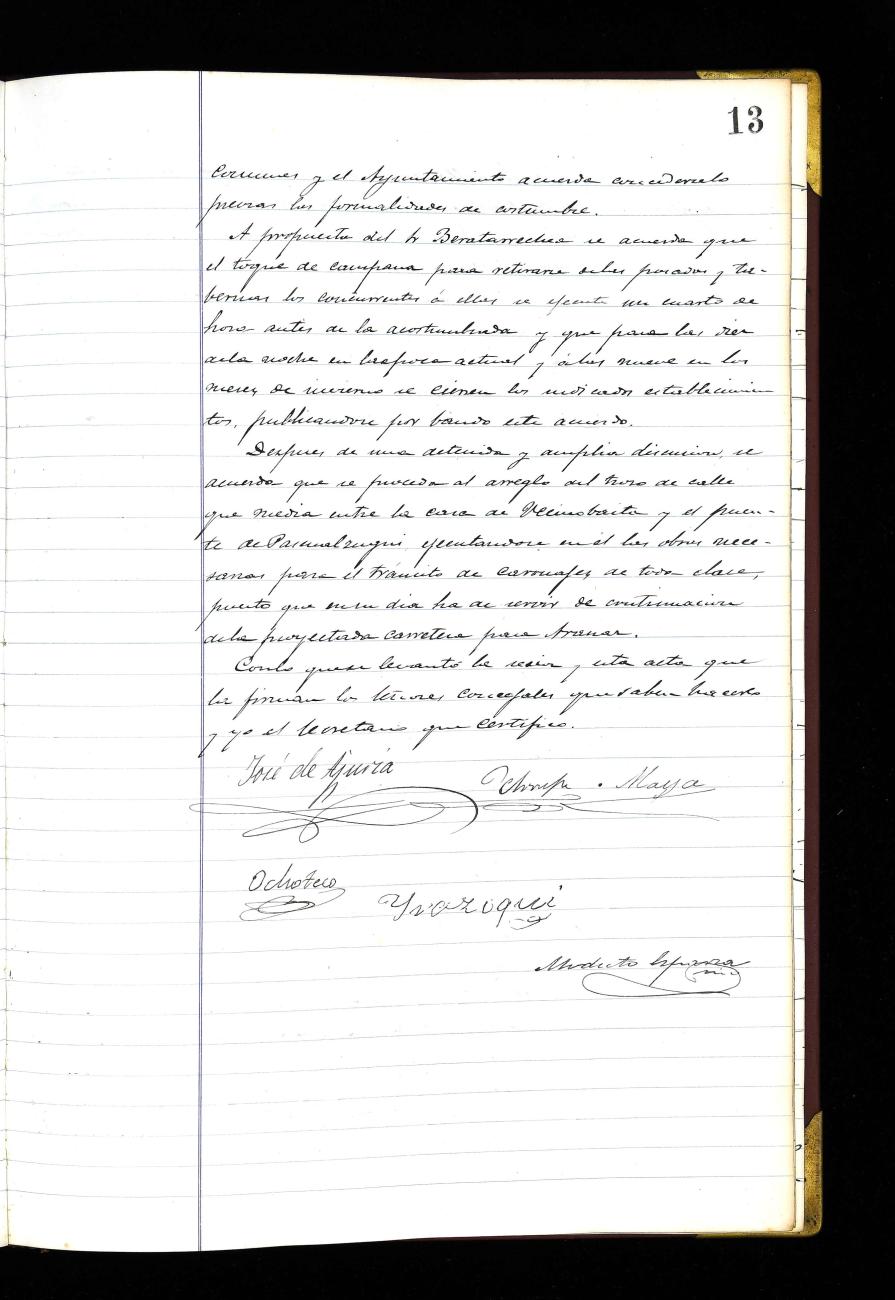 13
comunes y el Ayuntamiento acuerda concederselo
previas las formalidades de costumbre.
A propuesta del Sr Beratarrechea se acuerda que
el toque de campana para retirarse delas posadas y ta-
bernas los concurrentes á ellas se ejecute un cuarto de
hora antes de la acostumbrada y que para las diez
dela noche en laepoca actual y álas nueve en los
meses de invierno se cierren los indicados establecimien
tos, publicandose por bando este acuerdo.
Despues de una detenida y amplia discusion, se
acuerda que se proceda al arreglo del trozo de calle
que media entre la casa de y el puen-
te de ejecutandose en él las obras nece-
sarias para el tránsito de carruajes de toda clase,
puesto que en su dia ha de servir de continuacion
dela proyectada carretera para Aranaz.
Conlo quese levantó la sesion y esta acta que
la firman los Señores concejales que saben hacerlo
y yo el Secretario que certifico.
José de Ajuria
Maya
Ochoteco
Yrazoqui
Modesto Esparza